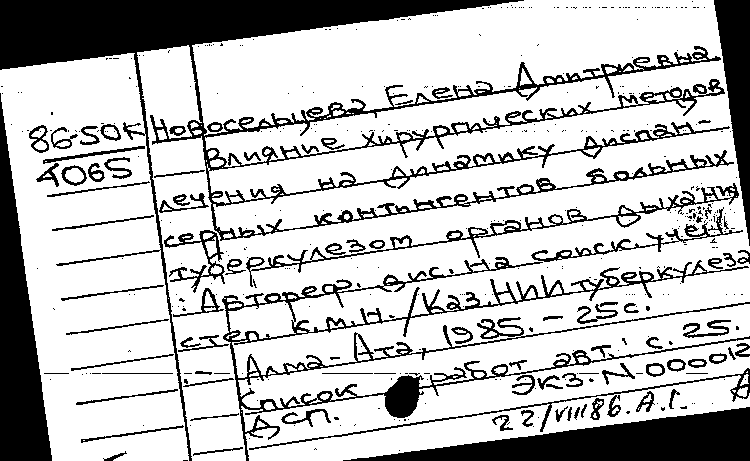 86-50К Новосельцева, Елена Дмитриевна
4065 Влияние хирургических методов
лечения на динамику диспан-
серных контингентов больных
туберкулезом органов дыхания
: Автореф. дис. на соиск. учен.
степ. к.м.н. / Каз. НИИ туберкулеза
. - Алма-Ата, 1985. - 25 с.
Список работ авт.: с. 25.
ДСП. Экз. N 000012
22/VIII 86. А.